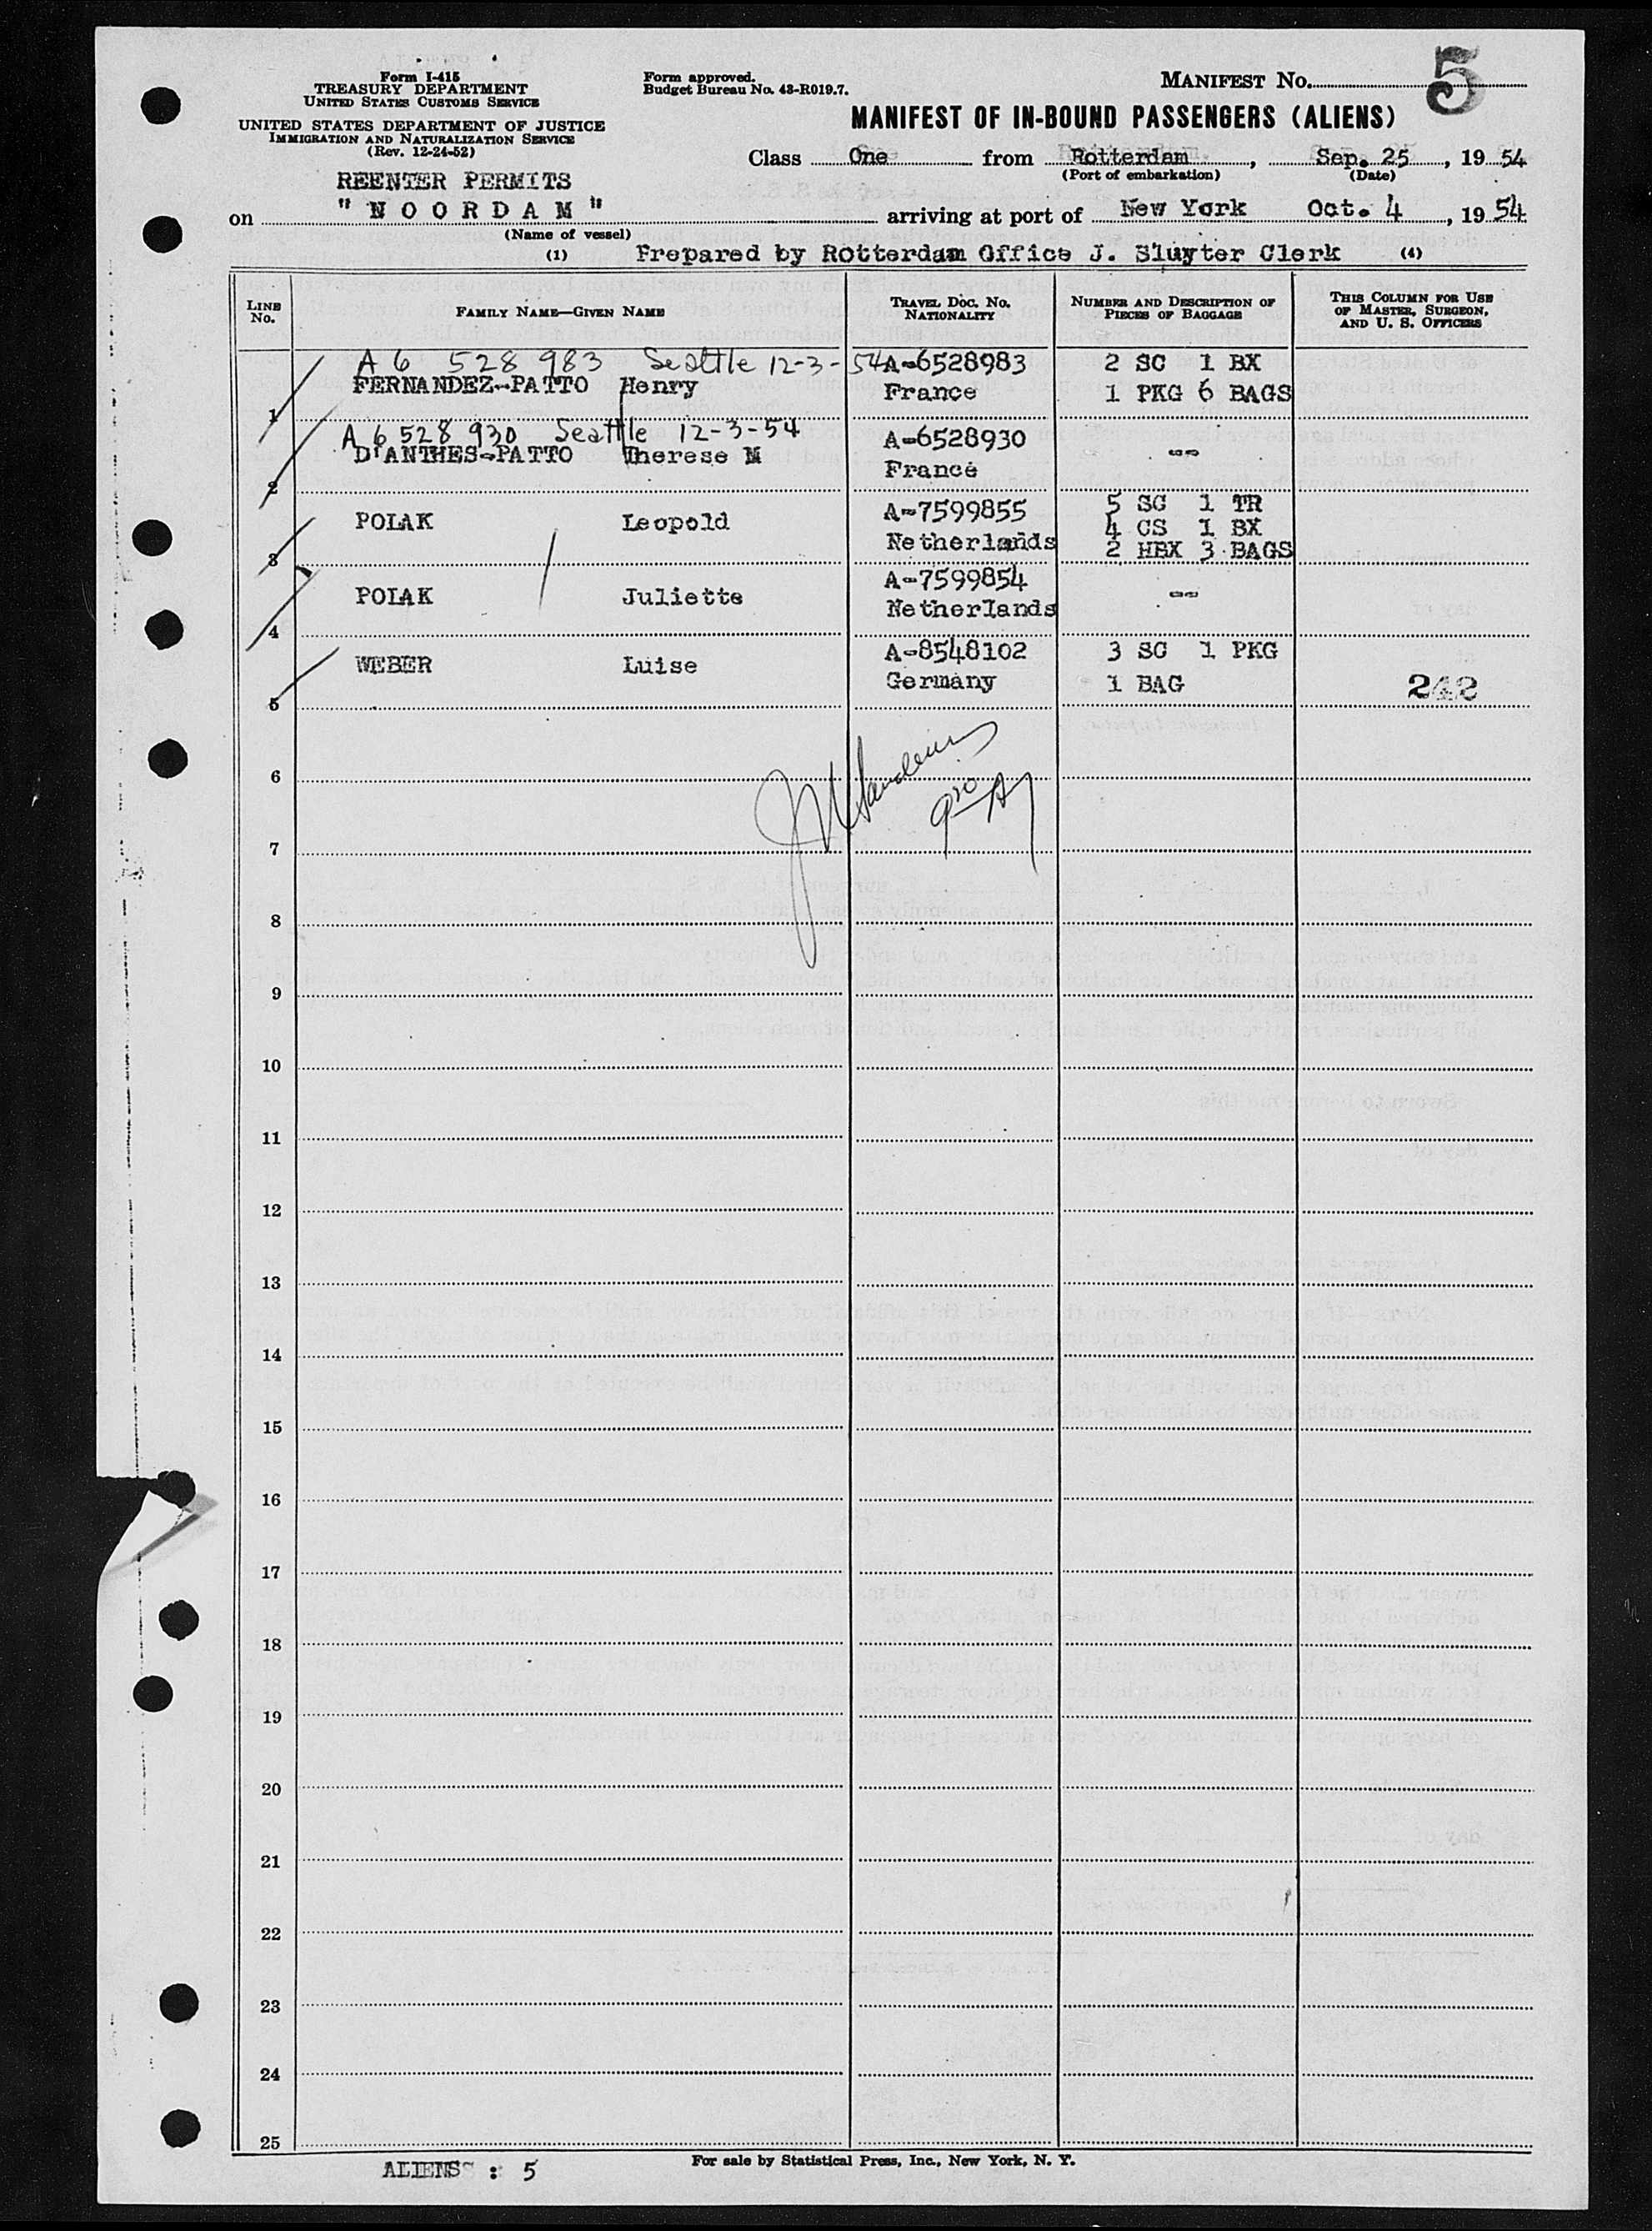 Form I-415
TREASURY DEPARTMENT
UNITED STATES CUSTOMS SERVICE
UNITED STATES DEPARTMENT OF JUSTICE
IMMIGRATION AND NATURALIZATION SERVICE
(Rev. 12-24-52)
Form approved.
Budget Bureau No. 43-R019.7.
MANIFEST No. 5
MANIFEST OF IN-BOUND PASSENGERS (ALIENS)
Class One from Rotterdam, Sep. 25, 19 54
(Port of embarkation) (Date)
REENTER PERMITS
on "NOORDAM" arriving at port of New York Oct. 4, 19 54
(Name of vessel)
(1) Prepared by Rotterdam Office J. Sluyter Clerk (4)
LINE No. FAMILY NAME—GIVEN NAME TRAVEL DOC. No. NATIONALITY NUMBER AND DESCRIPTION OF PIECES OF BAGGAGE THIS COLUMN FOR USE OF MASTER, SURGEON, AND U. S. OFFICERS
A6 528 983 Seattle 12-3-54 A-6528983 2 SC 1 BX
1 FERNANDEZ-PATTO Henry France 1 PKG 6 BAGS
A6 528 930 Seattle 12-3-54 A-6528930
2 D'ANTHES-PATTO Therese M France --
3 POLAK Leopold A-7599855 5 SC 1 TR
Netherlands 4 CS 1 BX
2 HBX 3 BAGS
4 POLAK Juliette A-7599854 --
Netherlands
5 WEBER Luise A-8548102 3 SC 1 PKG
Germany 1 BAG 242
6
7
8
9
10
11
12
13
14
15
16
17
18
19
20
21
22
23
24
25
ALIENS : 5
For sale by Statistical Press, Inc., New York, N. Y.